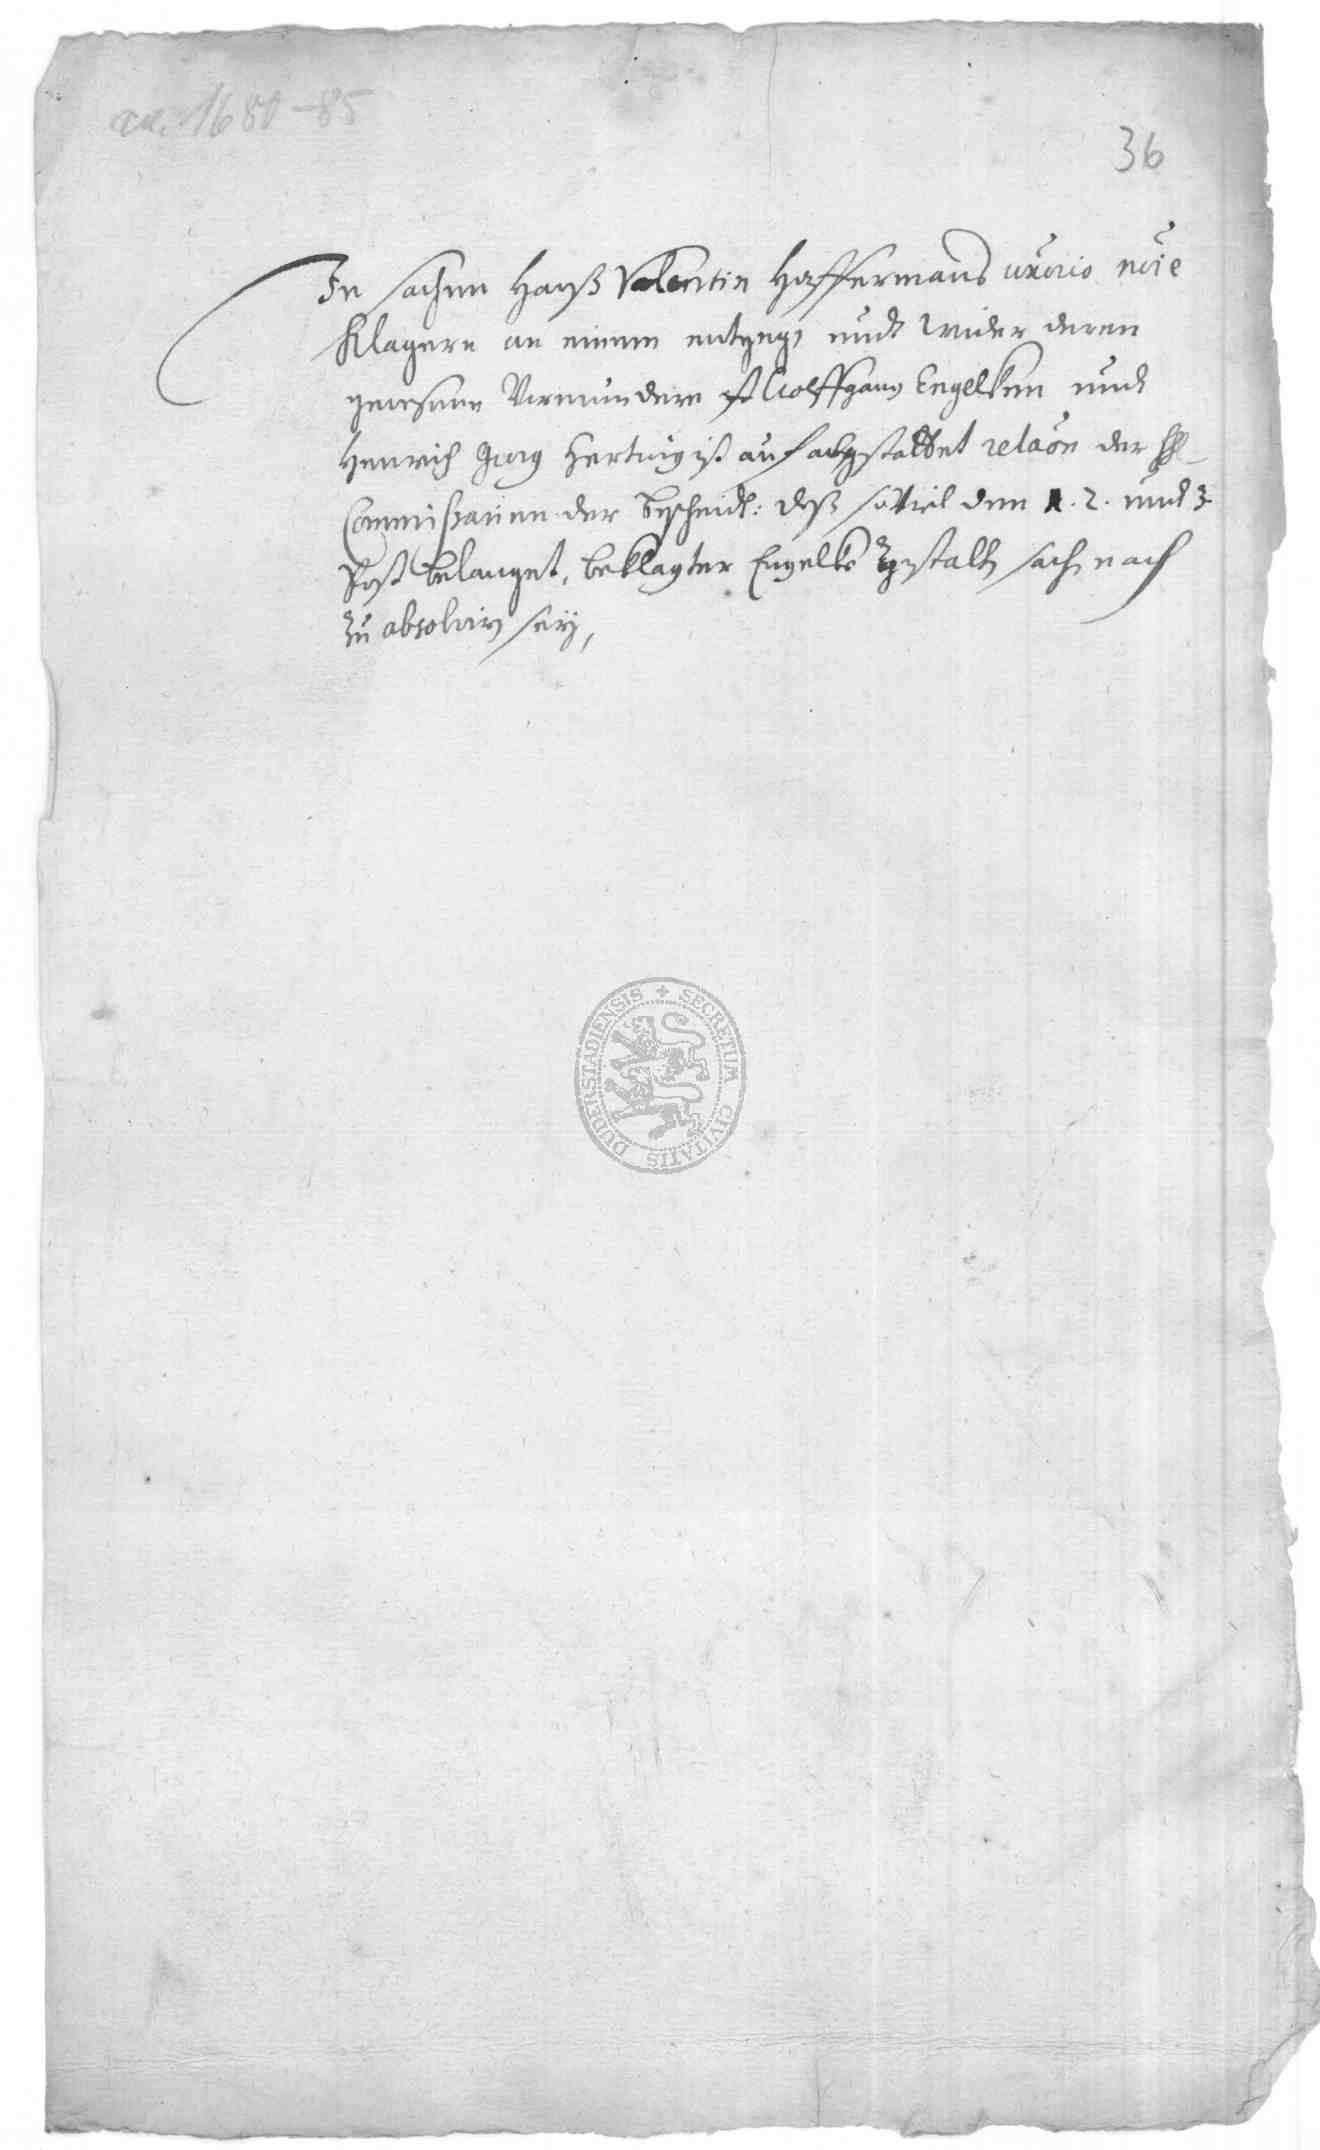 ca. 1680-85
36
In sachen Hanß Valentin Hoffermans uxorio noie
Klägern an einem entgegs undt wieder deren
gewesene Vormündere Wolffgang Engelken undt
Henrich Georg Hertwig ist auf abgestattet relaon der HH
Commissarien der bescheidt: daß soviel den 1. 2. undt 3.
Post belanget, beklagter Engelke gestalten sachen nach
zu absolviren sey,
SECRETUM CIVITATIS DUDERSTADIENSIS